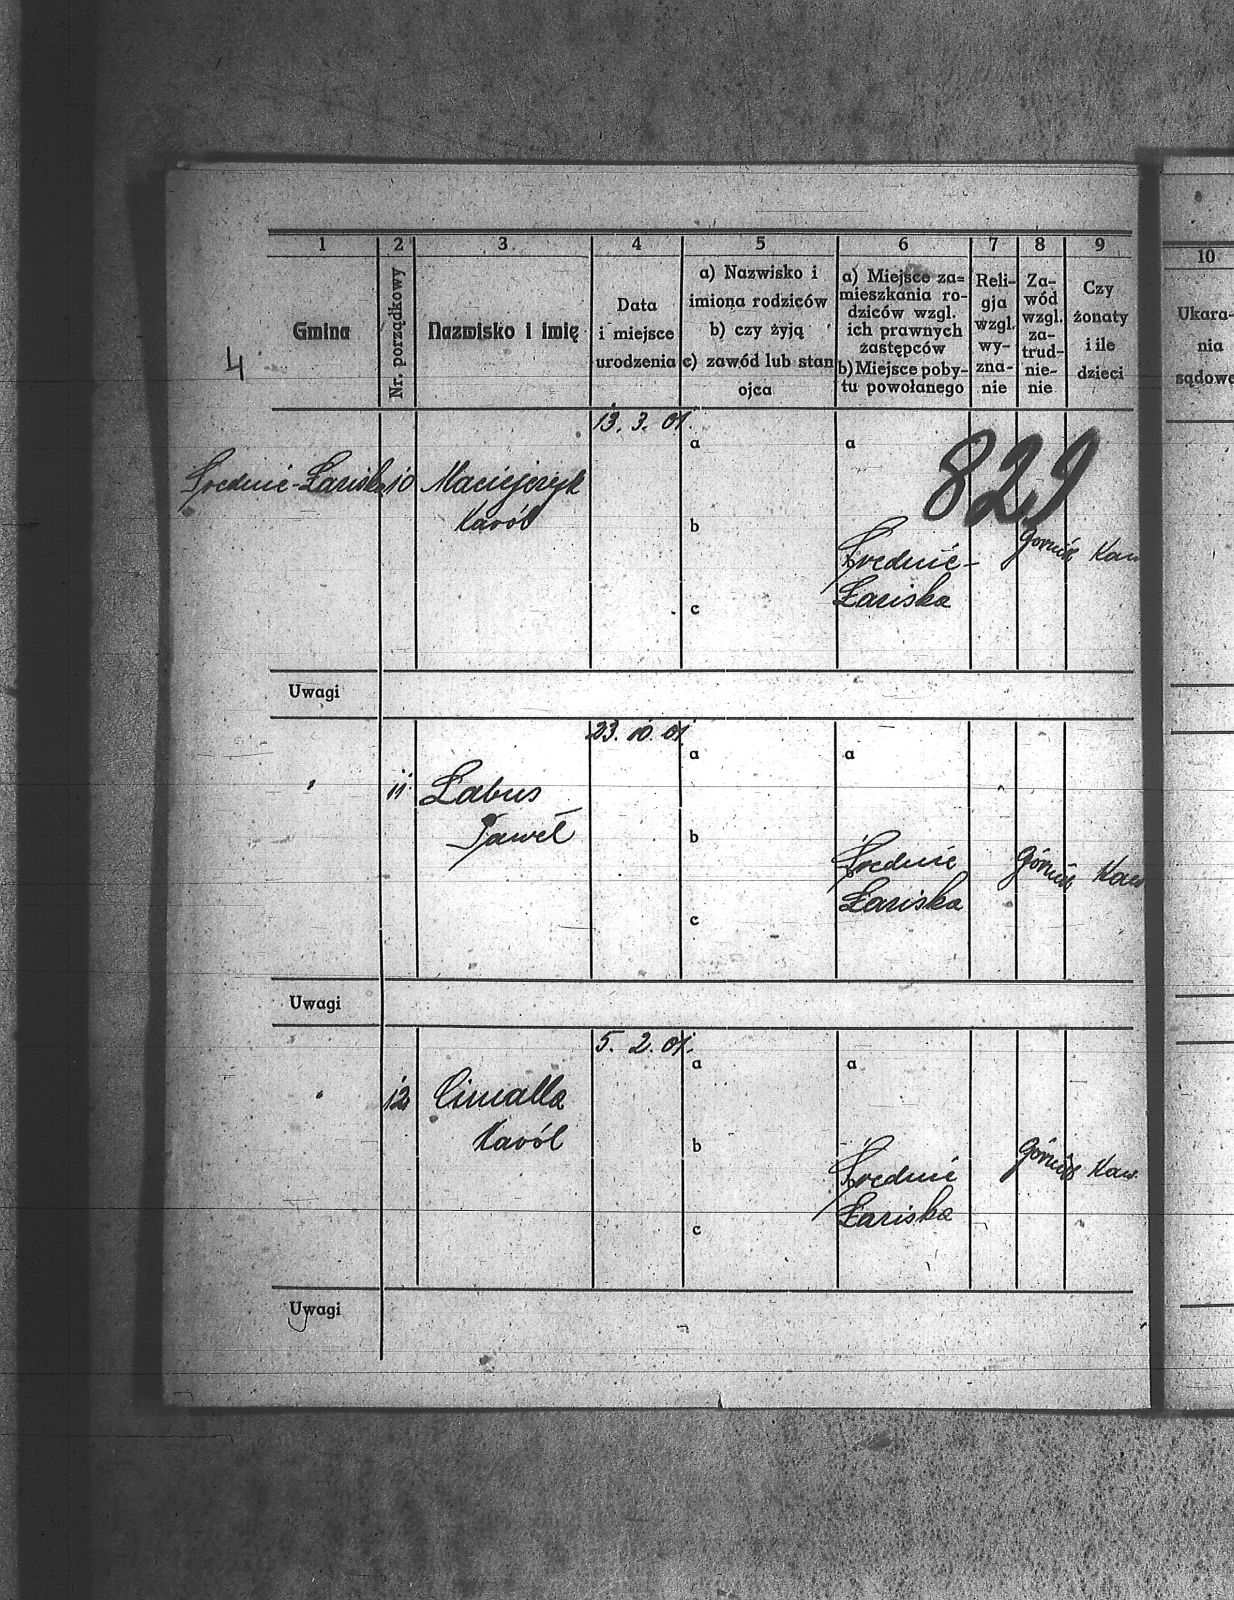 4
1 2 3 4 5 6 7 8 9
10
Gmina
Nr. porządkowy
Nazwisko i imię
Data
i miejsce
urodzenia
a) Nazwisko i
imiona rodziców
b) czy żyją
c) zawód lub stan
ojca
a) Miejsce za=
mieszkania ro-
dziców wzgl.
ich prawnych
zastępców
b) Miejsce poby-
tu powołanego
Reli-
gja
wzgl.
wy-
zna-
nie
Za-
wód
wzgl.
za-
trud-
nie-
nie
Czy
żonaty
i ile
dzieci
Ukara-
nia
sądowe
829
Średnie-Łaziska 10 Maciejczyk
Karól
13. 3. 01.
a
b
c
a
Średnie-
Łaziska
Górnik Kaw
Uwagi
" 11. Łabus
Paweł
23. 10. 01
a
b
c
a
Średnie
Łaziska
Górnik Kaw
Uwagi
" 12 Cimalla
Karól
5. 2. 01.
a
b
c
a
Średnie
Łaziska
Górnik Kaw.
Uwagi